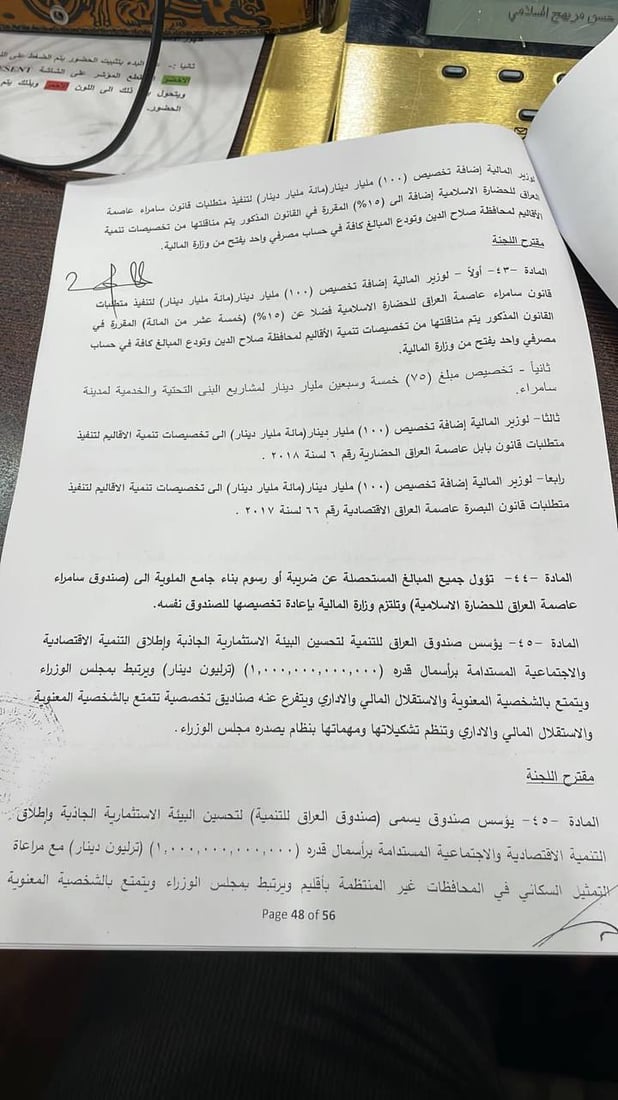 حسن مريهج السلامي
ثانيا :- البدء بتثبيت الحضور يتم الضغط على
الاخضر المؤشر على الشاشة
ويتحول ذلك الى اللون الاحمر وبذلك يتم
الحضور.
لوزير المالية إضافة تخصيص (١٠٠) مليار دينار(مائة مليار دينار) لتنفيذ متطلبات قانون سامراء عاصمة
العراق للحضارة الاسلامية إضافة الى (١٥%) المقررة في القانون المذكور يتم مناقلتها من تخصيصات تنمية
الأقاليم لمحافظة صلاح الدين وتودع المبالغ كافة في حساب مصرفي واحد يفتح من وزارة المالية.
مقترح اللجنة
المادة -٤٣- أولاً – لوزير المالية إضافة تخصيص (١٠٠) مليار دينار(مائة مليار دينار) لتنفيذ متطلبات
قانون سامراء عاصمة العراق للحضارة الاسلامية فضلا عن (١٥%) (خمسة عشر من المائة) المقررة في
القانون المذكور يتم مناقلتها من تخصيصات تنمية الأقاليم لمحافظة صلاح الدين وتودع المبالغ كافة في حساب
مصرفي واحد يفتح من وزارة المالية.
ثانياً - تخصيص مبلغ (٧٥) خمسة وسبعين مليار دينار لمشاريع البنى التحتية والخدمية لمدينة
سامراء.
ثالثا- لوزير المالية إضافة تخصيص (١٠٠) مليار دينار(مائة مليار دينار) الى تخصيصات تنمية الاقاليم لتنفيذ
متطلبات قانون بابل عاصمة العراق الحضارية رقم ٦ لسنة ٢٠١٨ .
رابعا- لوزير المالية إضافة تخصيص (١٠٠) مليار دينار(مائة مليار دينار) الى تخصيصات تنمية الاقاليم لتنفيذ
متطلبات قانون البصرة عاصمة العراق الاقتصادية رقم ٦٦ لسنة ٢٠١٧ .
المادة -٤٤- تؤول جميع المبالغ المستحصلة عن ضريبة أو رسوم بناء جامع الملوية الى (صندوق سامراء
عاصمة العراق للحضارة الاسلامية) وتلتزم وزارة المالية بإعادة تخصيصها للصندوق نفسه.
المادة -٤٥- يؤسس صندوق العراق للتنمية لتحسين البيئة الاستثمارية الجاذبة وإطلاق التنمية الاقتصادية
والاجتماعية المستدامة برأسمال قدره (١,٠٠٠,٠٠٠,٠٠٠,٠٠٠) (ترليون دينار) ويرتبط بمجلس الوزراء
ويتمتع بالشخصية المعنوية والاستقلال المالي والاداري ويتفرع عنه صناديق تخصصية تتمتع بالشخصية المعنوية
والاستقلال المالي والاداري وتنظم تشكيلاتها ومهماتها بنظام يصدره مجلس الوزراء .
مقترح اللجنة
المادة -٤٥- يؤسس صندوق يسمى (صندوق العراق للتنمية) لتحسين البيئة الاستثمارية الجاذبة وإطلاق
التنمية الاقتصادية والاجتماعية المستدامة برأسمال قدره (١,٠٠٠,٠٠٠,٠٠٠,٠٠٠) (ترليون دينار) مع مراعاة
التمثيل السكاني في المحافظات غير المنتظمة بأقليم ويرتبط بمجلس الوزراء ويتمتع بالشخصية المعنوية
Page 48 of 56